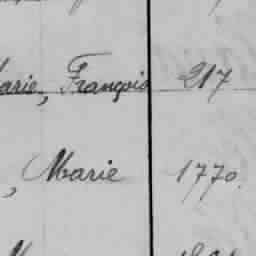 arie, François 217
, Marie 1770.